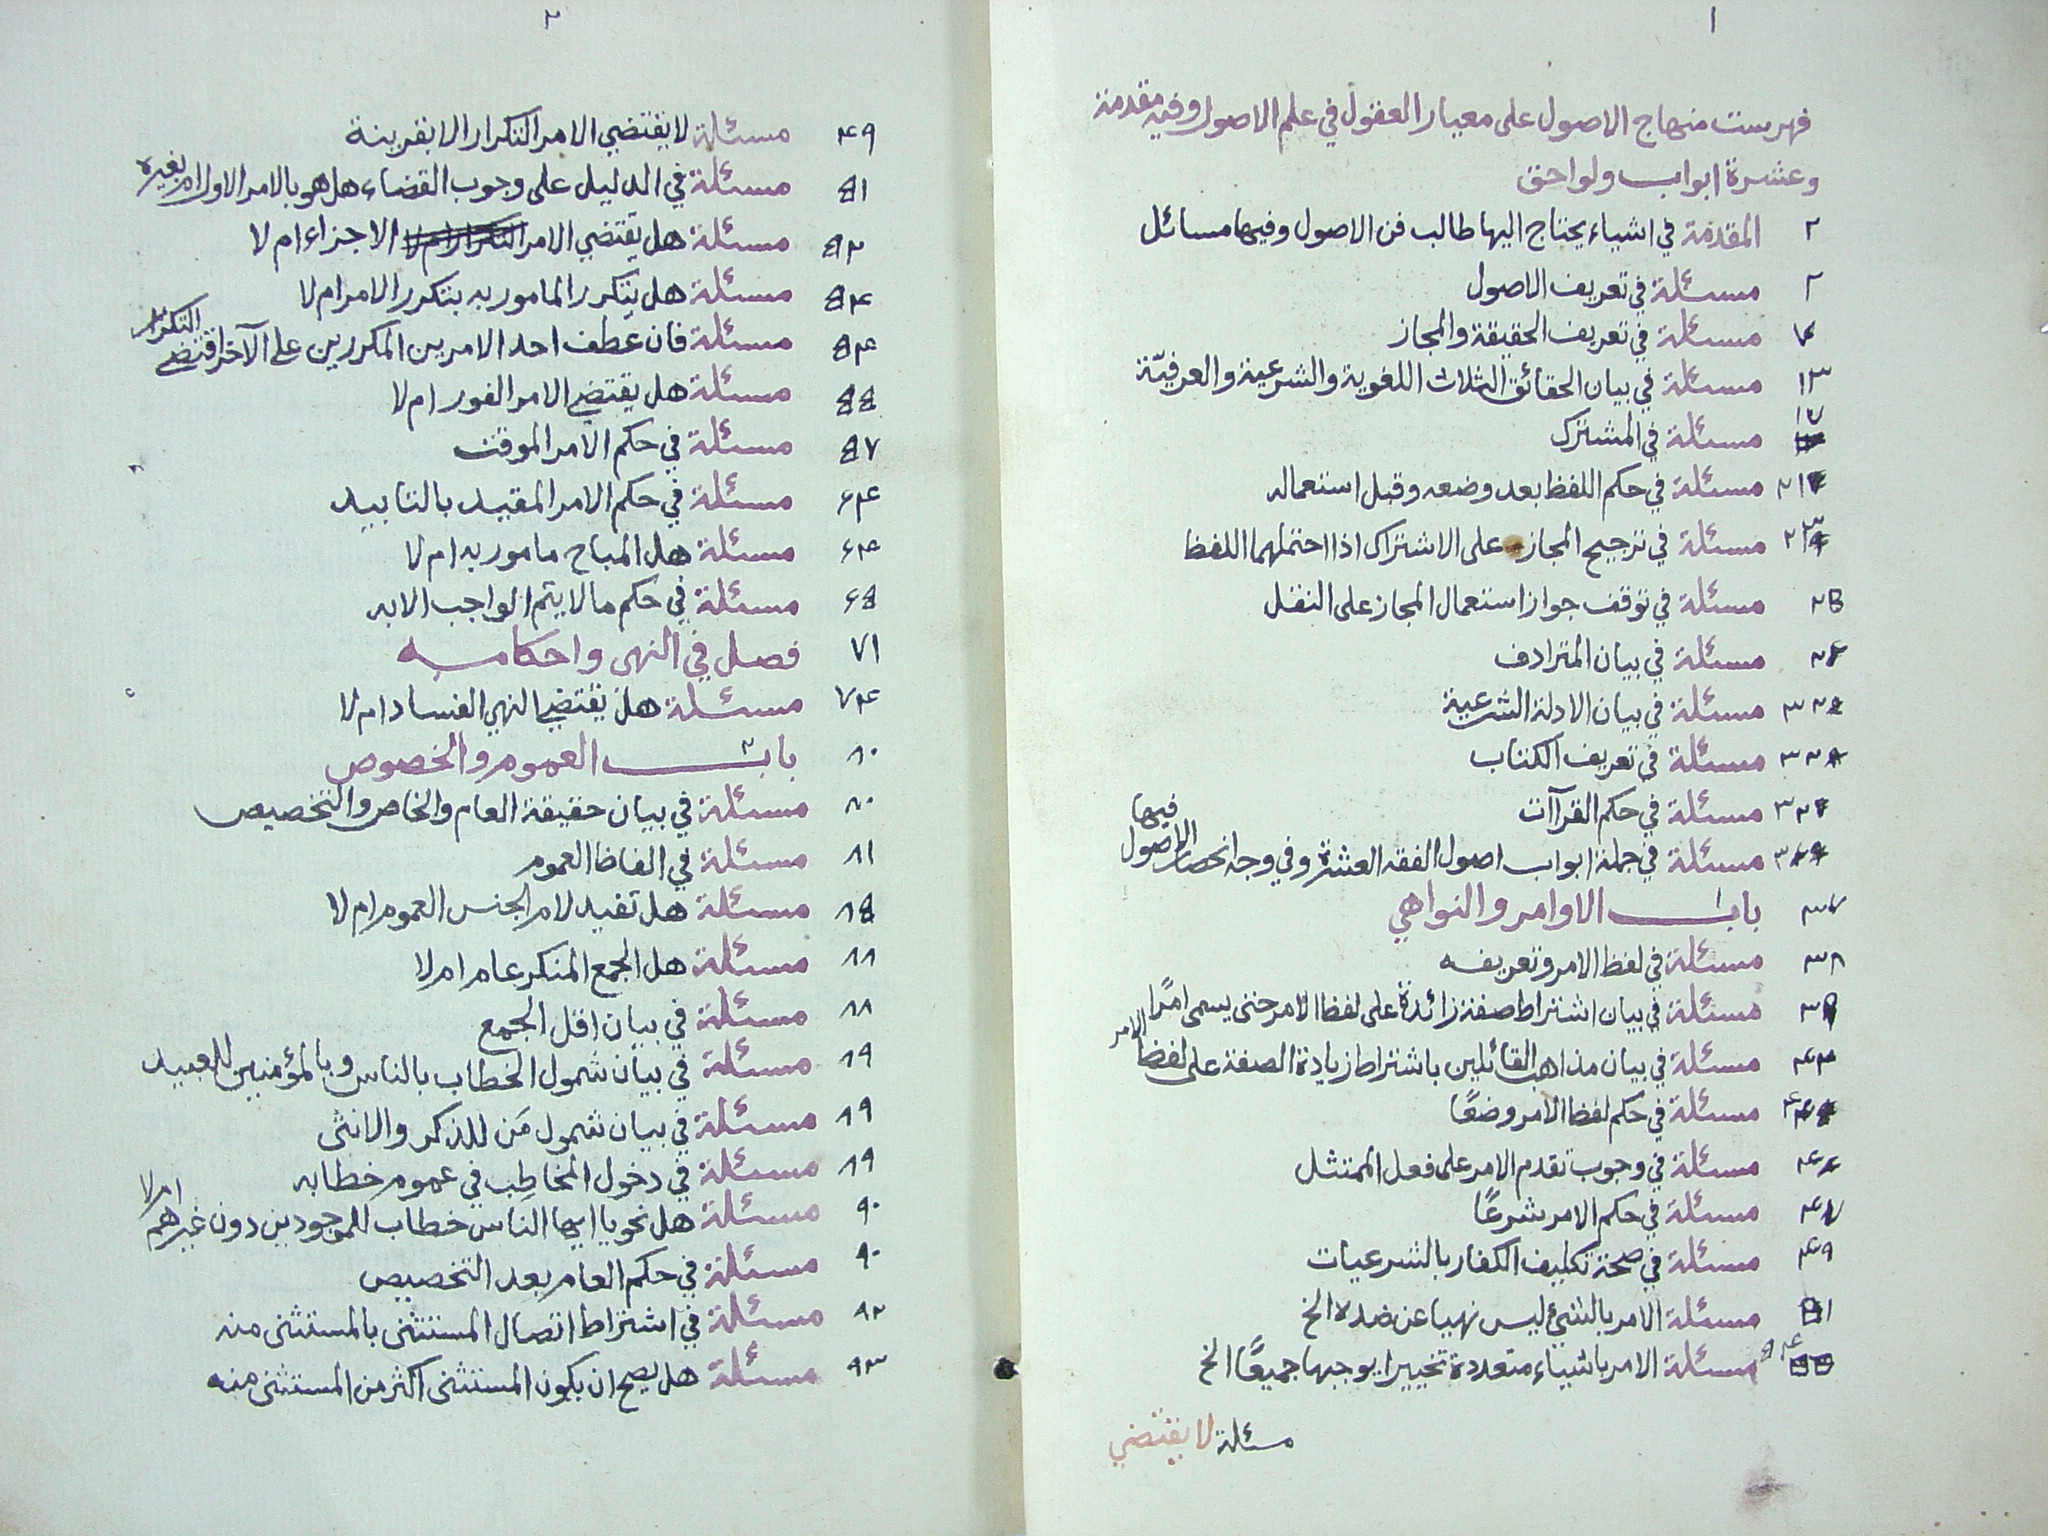 ١
فهرست منهاج الاصول على معيار العقول في علم الاصول وفيه مقدمة
وعشرة ابواب ولواحق
٢ المقدمة في اشياء يحتاج اليها طالب فن الاصول وفيها مسائل
٢ مسئلة في تعريف الاصول
٧ مسئلة في تعريف الحقيقة والمجاز
١٣ مسئلة في بيان الحقائق الثلاث اللغوية والشرعية والعرفيّة
١٧ مسئلة في المشترك
٢١ مسئلة في حكم اللفظ بعد وضعه وقبل استعماله
٢٣ مسئلة في ترجيح المجاز على الاشتراك اذا احتملهما اللفظ
٢٥ مسئلة في توقف جواز استعمال المجاز على النقل
مسئلة في بيان المترادف
مسئلة في بيان الادلة الشرعية
مسئلة في تعريف الكتاب
مسئلة في حكم القراآت
مسئلة في جملة ابواب اصول الفقه العشرة وفي وجه انحصار الاصول فيها
٣٧ باب١ الاوامر والنواهي
٣٨ مسئلة في لفظ الامر وتعريفه
مسئلة في بيان اشتراط صفة زائدة على لفظ الامر حتى يسمى امرًا
مسئلة في بيان مذاهب القائلين باشتراط زيادة الصفة على لفظ الامر
مسئلة في حكم لفظ الامر وضعًا
مسئلة في وجوب تقدم الامر على فعل الممتثل
٤٧ مسئلة في حكم الامر شرعًا
٤٩ مسئلة في صحة تكليف الكفار بالشرعيات
٥١ مسئلة الامر بالشيء ليس نهيا عن ضده الخ
مسئلة الامر باشياء متعددة تخييرا يوجبها جميعًا الخ
مسئلة لا يقتضي
٢
٤٩ مسئلة لا يقتضي الامر التكرار الا بقرينة
٥١ مسئلة في الدليل على وجوب القضاء هل هو بالامر الاول ام بغيره
٥٢ مسئلة هل يقتضي الامر الاجزاء ام لا
٥٤ مسئلة هل يتكرر المامور به بتكرر الامر ام لا
٥٤ مسئلة فان عطف احد الامرين المكررين على الآخر اقتضى التكرار
٥٥ مسئلة هل يقتضي الامر الفور ام لا
٥٧ مسئلة في حكم الامر الموقت
٦٤ مسئلة في حكم الامر المقيد بالتابيد
٦٤ مسئلة هل المباح مامور به ام لا
٦٥ مسئلة في حكم ما لا يتم الواجب الا به
٧١ فصل في النهى واحكامه
٧٤ مسئلة هل يقتضي النهي الفساد ام لا
٨٠ باب٢ العموم والخصوص
٨٠ مسئلة في بيان حقيقة العام والخاص والتخصيص
٨١ مسئلة في الفاظ العموم
٨٥ مسئلة هل تفيد لام الجنس العموم ام لا
٨٨ مسئلة هل الجمع المنكر عام ام لا
٨٨ مسئلة في بيان اقل الجمع
٨٩ مسئلة في بيان شمول الخطاب بالناس وبالمؤمنين للعبيد
٨٩ مسئلة في بيان شمول مَن للذكر والانثى
٨٩ مسئلة في دخول المخاطِب في عموم خطابه
٩٠ مسئلة هل نحو يا ايها الناس خطاب للموجودين دون غيرهم ام لا
٩٠ مسئلة في حكم العام بعد التخصيص
٩٢ مسئلة في اشتراط اتصال المستثنى بالمستثنى منه
٩٣ مسئلة هل يصح ان يكون المستثنى اكثر من المستثنى منه